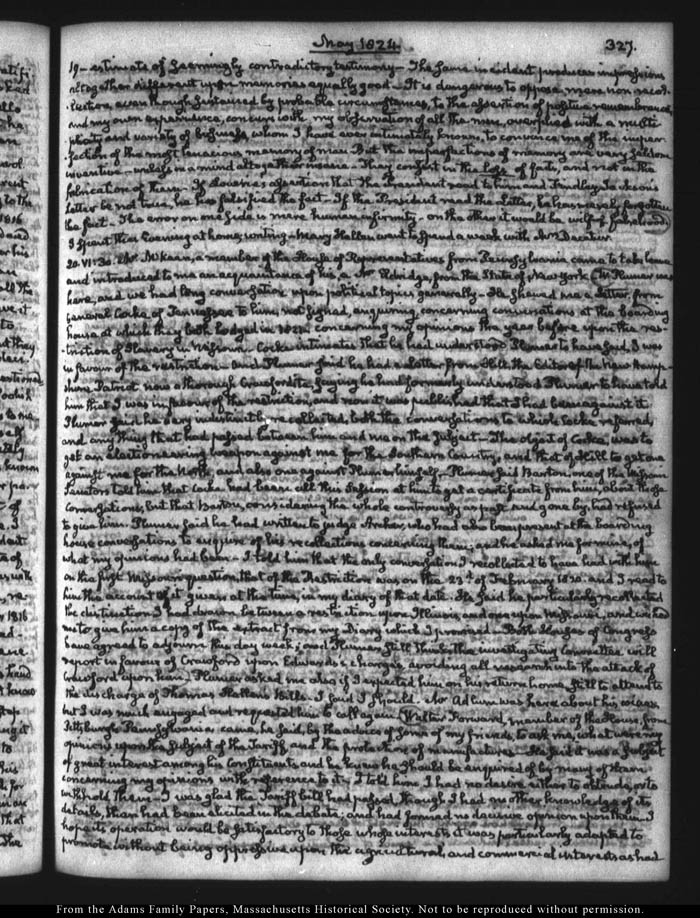 May 1824. 327.
19— estimate of seemingly contradictory testimony— The same incident produces impressions
altogether different upon memories equally good— It is dangerous to oppose mere non recol-
-lection, even though fortified by probable circumstances, to the assertion of positive remembrance
and my own experience, concurs with my observation of all the men, overplied with a multi-
plicity and variety of business, whom I have ever intimately known, to convince me of the imper-
-fection of the most tenacious memory of man. But the imperfections of memory are very seldom
inventive— unless in a mind altogether insane. They consist in the loss of facts, and not in the
fabrication of them— If Lowrie's assertion that the President read to him and Findlay, Jackson's
Letter be not true, he has falsified the fact— If the President read the Letter, he has merely forgotten
the fact— The error on one side is mere human infirmity— on the other it would be wilful falsehood.
I spent the Evening at home, writing— Mary Hellen went to spend a week with Mrs Decatur.
20. VI:30. Mr McKean, a member of the House of Representatives from Pennsylvania came to take leave
and introduced to me an acquaintance of his, a Mr Eldridge, from the State of New York (Mr Plumer was
here, and we had long conversation upon political topics generally— He shewed me a Letter, from
General Cocke of Tennessee to him, not signed, enquiring concerning conversations at the boarding
house at which they both lodged in 1821. concerning my opinions the year before upon the res-
-triction of Slavery in Missouri. Cocke intimates that he had understood Plumer to have said, I was
in favour of the restriction— And Plumer said he had a Letter from Hill, the Editor of the New Hamp-
shire Patriot now a thorough Crawfordite, saying he had formerly understood Plumer to have told
him that I was in favour of the restriction, and now it was published that I had been against it
Plumer said he very indistinctly recollected, both the conversations to which Cocke referred,
and any thing that had passed between him and me on the subject— The object of Cocke, was to
get an electioneering weapon against me for the Southern Country, and that of Hill to get one
against me for the North, and also one against Plumer himself— Plumer said Barton, one of the Missouri
Senators told him that Cocke had been all this Session at him to get a certificate from him, about those
conversations, but that Barton, considering the whole controversy as past and gone by, had refused
to give him. Plumer said he had written to judge Archer, who had also been present at the boarding
house conversations to enquire of his recollections concerning them; and he asked me for mine, of
what my opinions had been— I told him that the only conversation I recollected to have had with him
on the first Missouri question, that of the Restriction was on the 23d of February 1820. and I read to
him the account of it given at the time, in my diary of that date. He said he particularly recollected
the distinction I had drawn between a restriction upon Illinois, and one upon Missouri, and wished
me to give him a copy of the extract from my Diary which I promised— Both Houses of Congress
have agreed to adjourn this day week; and Plumer still thinks the investigating Committee will
report in favour of Crawford upon Edwards's charges, avoiding all research into the attack of
Crawford upon him. Plumer asked me also if I expected him on his return home, still to attend to
the discharge of Thomas Hellen's Bills. I said I should. Mr Adlum was here about his
but I was much engaged and requested him to call again (Walter Forward, member of the House, from
Pittsburgh Pennsylvania came, he said, by the advice of some of my friends, to ask me, what were my
opinions upon the subject of the Tariff, and the protection of manufactures— He said it was a subject
of great interest among his Constituents and he knew he should be enquired of by many of them
concerning my opinions with reference to it— I told him I had no desire either to obtrude, or to
withhold them— I was glad the Tariff bill had passed, though I had no other knowledge of its
details, than had been elicited in the debate; and had formed no decisive opinion upon them. I
hope its operation would be satisfactory to those whose interests it was particularly adapted to
promote, without being oppressive upon the agricultural, and commercial interests as had
From the Adams Family Papers, Massachusetts Historical Society. Not to be reproduced without permission.